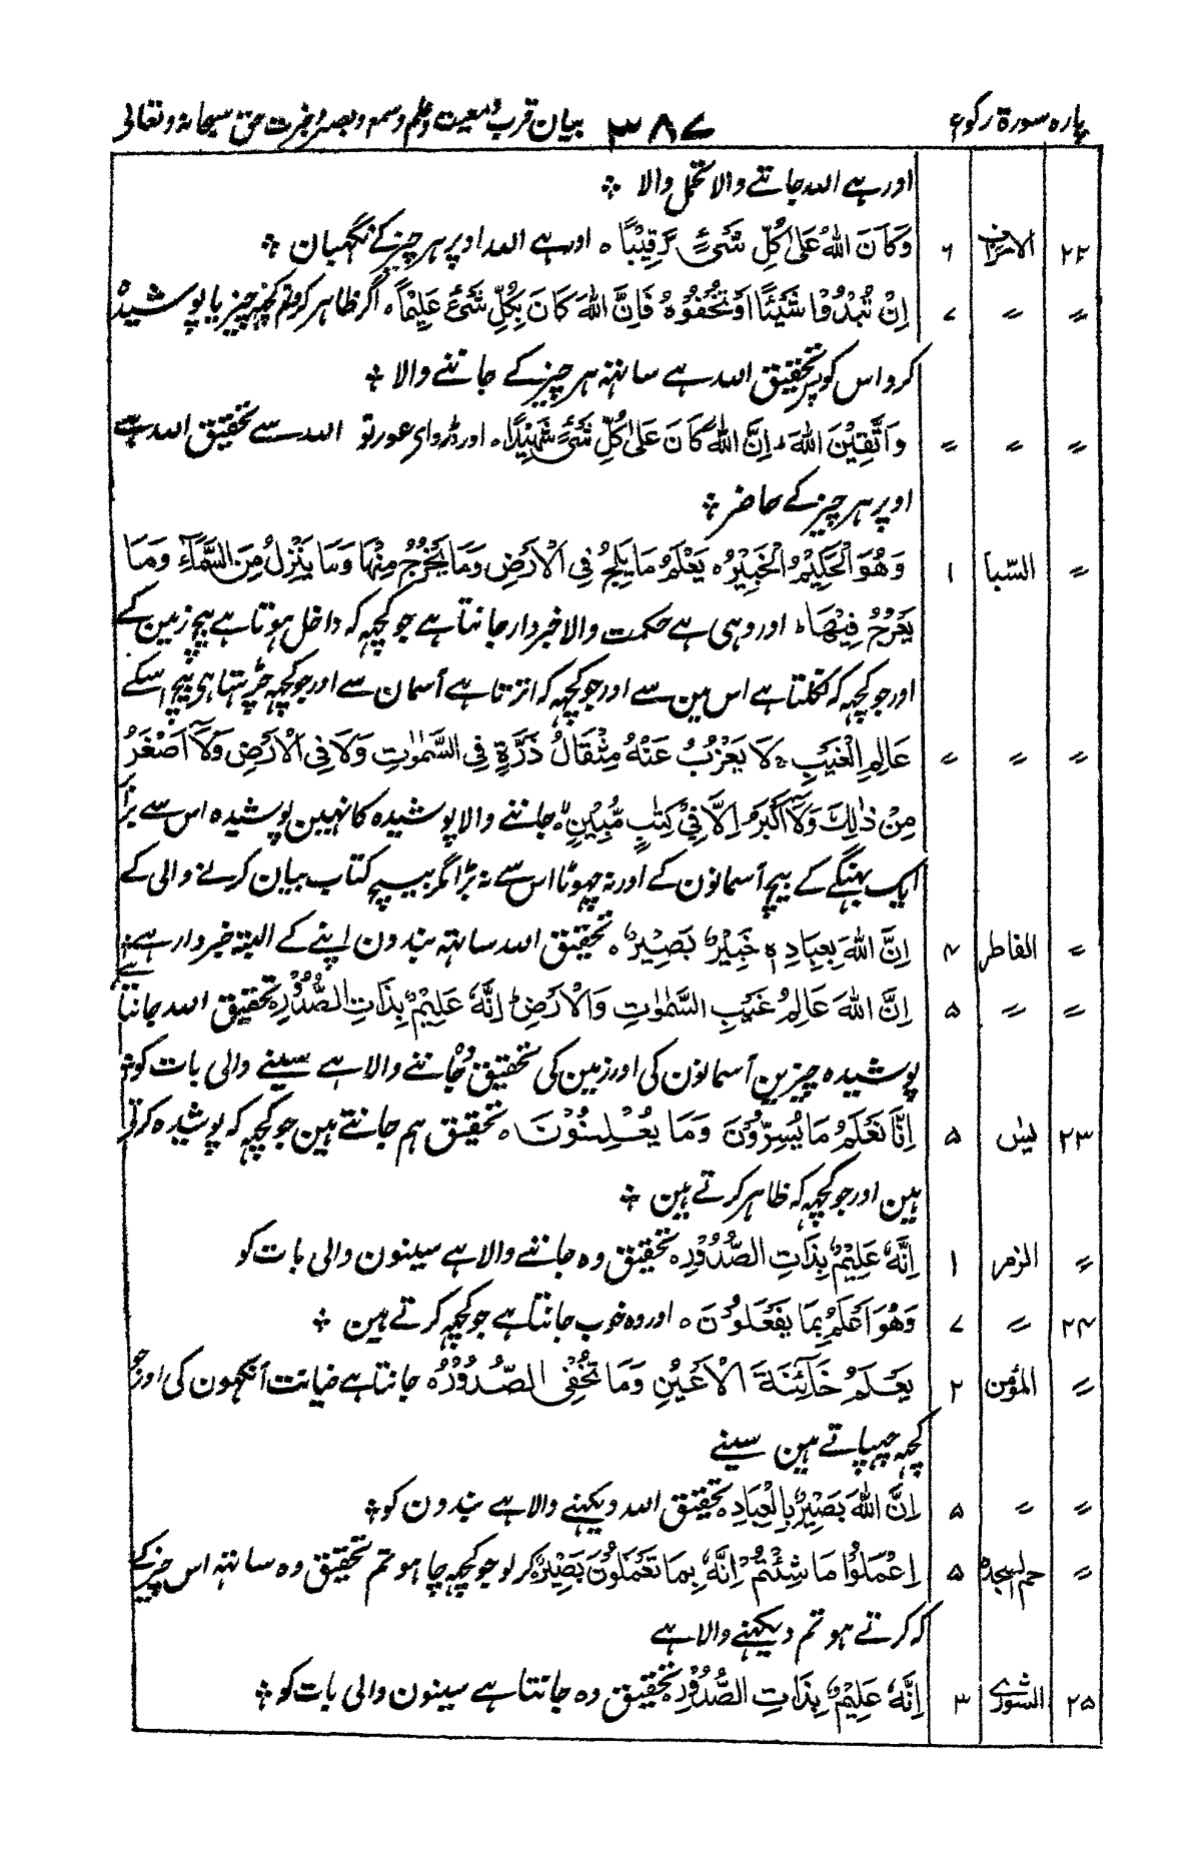 پارہ سورۃ رکوع ۳۸۷ بیان قرب و معیت و علم و سمع و بصر و خبرت حق سبحانہ و تعالی
اور ہے اللہ جاننے والا تحمل والا ؞
۲۲ الاحزاب ۶ وَكَانَ اللهُ عَلٰى كُلِّ شَيْءٍ رَّقِيْبًا ہ اور ہے اللہ اوپر ہر چیز کے نگہبان ؞
〃 〃 ۷ اِنْ تُبْدُوْا شَيْئًا اَوْ تُخْفُوْهُ فَاِنَّ اللهَ كَانَ بِكُلِّ شَيْءٍ عَلِيْمًا ہ اگر ظاہر کرو تم کچھ چیز یا پوشیدہ
کرو اس کو پس تحقیق اللہ ہے ساتہہ ہر چیز کے جاننے والا ؞
〃 〃 〃 وَاتَّقِيْنَ اللهَ ؕ اِنَّ اللهَ كَانَ عَلٰى كُلِّ شَيْءٍ شَهِيْدًا ہ اور ڈرو ای عورتو اللہ سے تحقیق اللہ ہے
اوپر ہر چیز کے حاضر ؞
〃 السّبا ۱ وَهُوَ الْحَكِيْمُ الْخَبِيْرُ ہ يَعْلَمُ مَا يَلِجُ فِى الْاَرْضِ وَمَا يَخْرُجُ مِنْهَا وَمَا يَنْزِلُ مِنَ السَّمَآءِ وَمَا
يَعْرُجُ فِيْهَا ؕ اور وہی ہے حکمت والا خبردار جانتا ہے جو کچہہ کہ داخل ہوتا ہے بیچ زمین کے
اور جو کچہہ کہ نکلتا ہے اس مین سے اور جو کچہہ کہ اترتا ہے آسمان سے اور جو کچہہ چڑہتا ہی بیچ اسکے
〃 〃 〃 عَالِمِ الْغَيْبِ ۚ لَا يَعْزُبُ عَنْهُ مِثْقَالُ ذَرَّةٍ فِى السَّمٰوٰتِ وَلَا فِى الْاَرْضِ وَلَآ اَصْغَرُ
مِنْ ذٰلِكَ وَلَآ اَكْبَرُ اِلَّا فِىْ كِتٰبٍ مُّبِيْنٍ ہ جاننے والا پوشیدہ کا نہین پوشیدہ اس سے برابر
ایک بہنگے کے بیچ آسمانون کے اور نہ چہوٹا اس سے نہ بڑا مگر بیچ کتاب بیان کرنے والی کے
〃 الفاطر ۴ اِنَّ اللهَ بِعِبَادِهٖ خَبِيْرٌ بَصِيْرٌ ہ تحقیق اللہ ساتہہ بندون اپنے کے البتہ خبردار ہے ؞
〃 〃 ۵ اِنَّ اللهَ عَالِمُ غَيْبِ السَّمٰوٰتِ وَالْاَرْضِ ؕ اِنَّهٗ عَلِيْمٌ بِذَاتِ الصُّدُوْرِ ہ تحقیق اللہ جانتا ہے
پوشیدہ چیزین آسمانون کی اور زمین کی تحقیق وہ جاننے والا ہے سینے والی بات کو ؞
۲۳ یٰس ۵ اِنَّا نَعْلَمُ مَا يُسِرُّوْنَ وَمَا يُعْلِنُوْنَ ہ تحقیق ہم جانتے ہین جو کچہہ کہ پوشیدہ کرتی
ہین اور جو کچہہ کہ ظاہر کرتے ہین ؞
〃 الزمر ۱ اِنَّهٗ عَلِيْمٌ بِذَاتِ الصُّدُوْرِ ہ تحقیق وہ جاننے والا ہے سینون والی بات کو
۲۴ 〃 ۷ وَهُوَ اَعْلَمُ بِمَا يَفْعَلُوْنَ ہ اور وہ خوب جانتا ہے جو کچہہ کرتے ہین ؞
〃 المؤمن ۲ يَعْلَمُ خَآئِنَةَ الْاَعْيُنِ وَمَا تُخْفِى الصُّدُوْرُ ہ جانتا ہے خیانت آنکہون کی اور جو
کچہہ چہپاتے ہین سینے
〃 〃 ۵ اِنَّ اللهَ بَصِيْرٌ بِالْعِبَادِ ہ تحقیق اللہ دیکہنے والا ہے بندون کو ؞
〃 حم السجدہ ۵ اِعْمَلُوْا مَا شِئْتُمْ ؕ اِنَّهٗ بِمَا تَعْمَلُوْنَ بَصِيْرٌ ہ کر لو جو کچہہ چاہو تم تحقیق وہ ساتہہ اس چیز کے
کہ کرتے ہو تم دیکہنے والا ہے
۲۵ الشوری ۳ اِنَّهٗ عَلِيْمٌ بِذَاتِ الصُّدُوْرِ ہ تحقیق وہ جانتا ہے سینون والی بات کو ؞